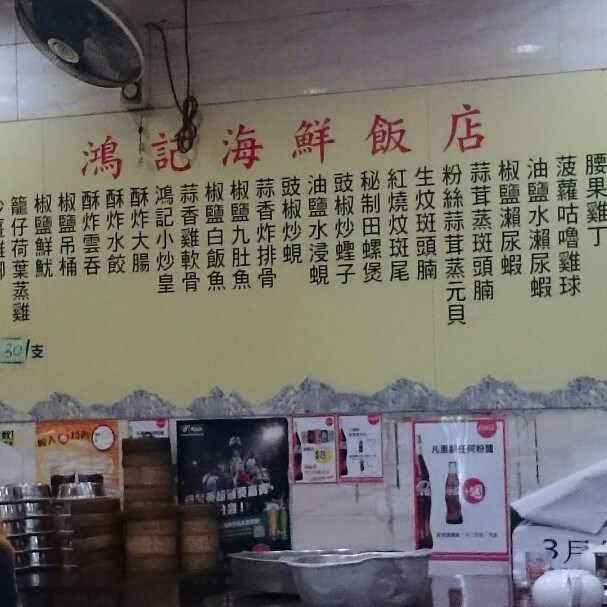 鴻記海鮮飯店
腰果雞丁
菠蘿咕嚕雞球
油鹽水瀨尿蝦
椒鹽瀨尿蝦
蒜茸蒸斑頭腩
粉絲蒜茸蒸元貝
生炆斑頭腩
紅燒炆斑尾
秘制田螺煲
豉椒炒蟶子
油鹽水浸蜆
豉椒炒蜆
蒜香炸排骨
椒鹽九肚魚
椒鹽白飯魚
蒜香雞軟骨
鴻記小炒皇
酥炸大腸
酥炸水餃
酥炸雲吞
椒鹽吊桶
椒鹽鮮魷
籠仔荷葉蒸雞
30/支
$8
凡惠顧任何粉麵
3月